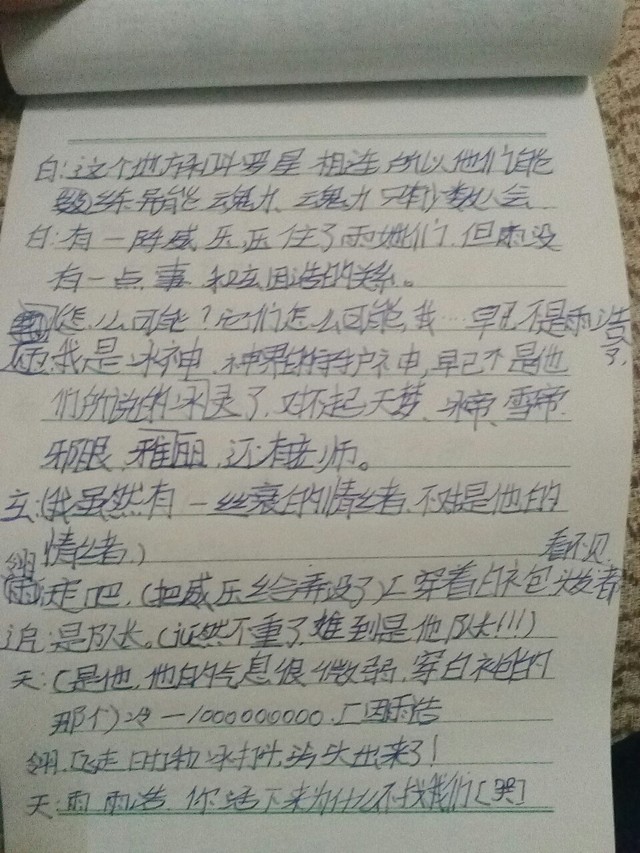 白:这个地方和斗罗星相连,所以他们能
练异能、魂力、魂力只有少数人会
白:有一阵威乐压住了雨她们,但雨没
有一点事和立因浩的关系。
怎么可能?它们怎么可能,我…早已不是雨浩了,
雨:我是冰神,神界的守护神,早已不是他
们所说的冰灵了,对不起,天梦、冰帝、雪帝
邪眼、雅丽,还有老师。
立:(我虽然有一丝衰的情绪,不对是他的
情绪,)
翎:走吧,(把威乐给弄没了)[穿着白衤包头发看不见
追:是队长。(近然不重了,难到是他队长!!!)
天:(是他,他的气息很微弱,穿白衤包的
那个)冷一1000000000.[因雨浩
翎:飞走时和冰打,头出来了!
天:雨雨浩,你活下来为什么不找我们[哭]